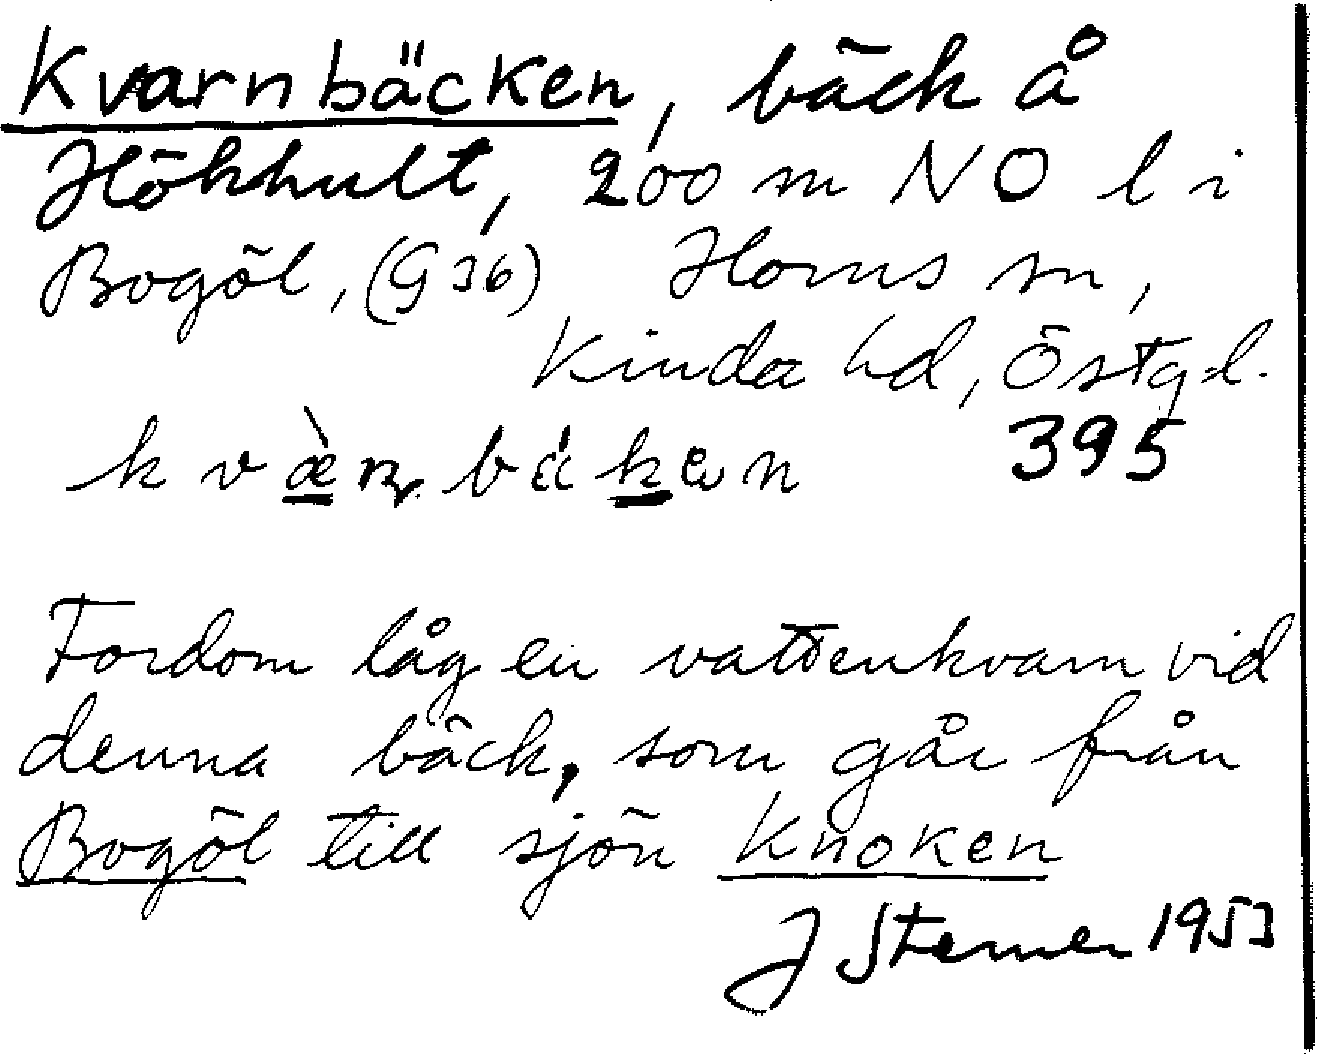 Kvarnbäcken, bäck å
Hökhult, 200 m NO l i
Bogöl, (G 36) Horns sn,
Kinda hd, Östg-l.
395
Fordom låg en vattenkvarn vid
denna bäck, som går från
Bogöl till sjön Knoken
J Sterner 1953